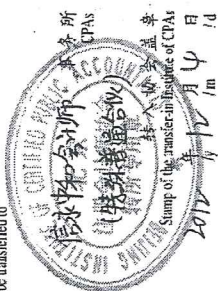 be transferred to
信永中和会计师
事务所
CPAs
(特殊普通合伙)
转入协会盖章
Stamp of the transfer-in Institute of CPAs
2012年12月4日
/y /m /d
BEIJING INSTITUTE OF CERTIFIED PUBLIC ACCOUNT